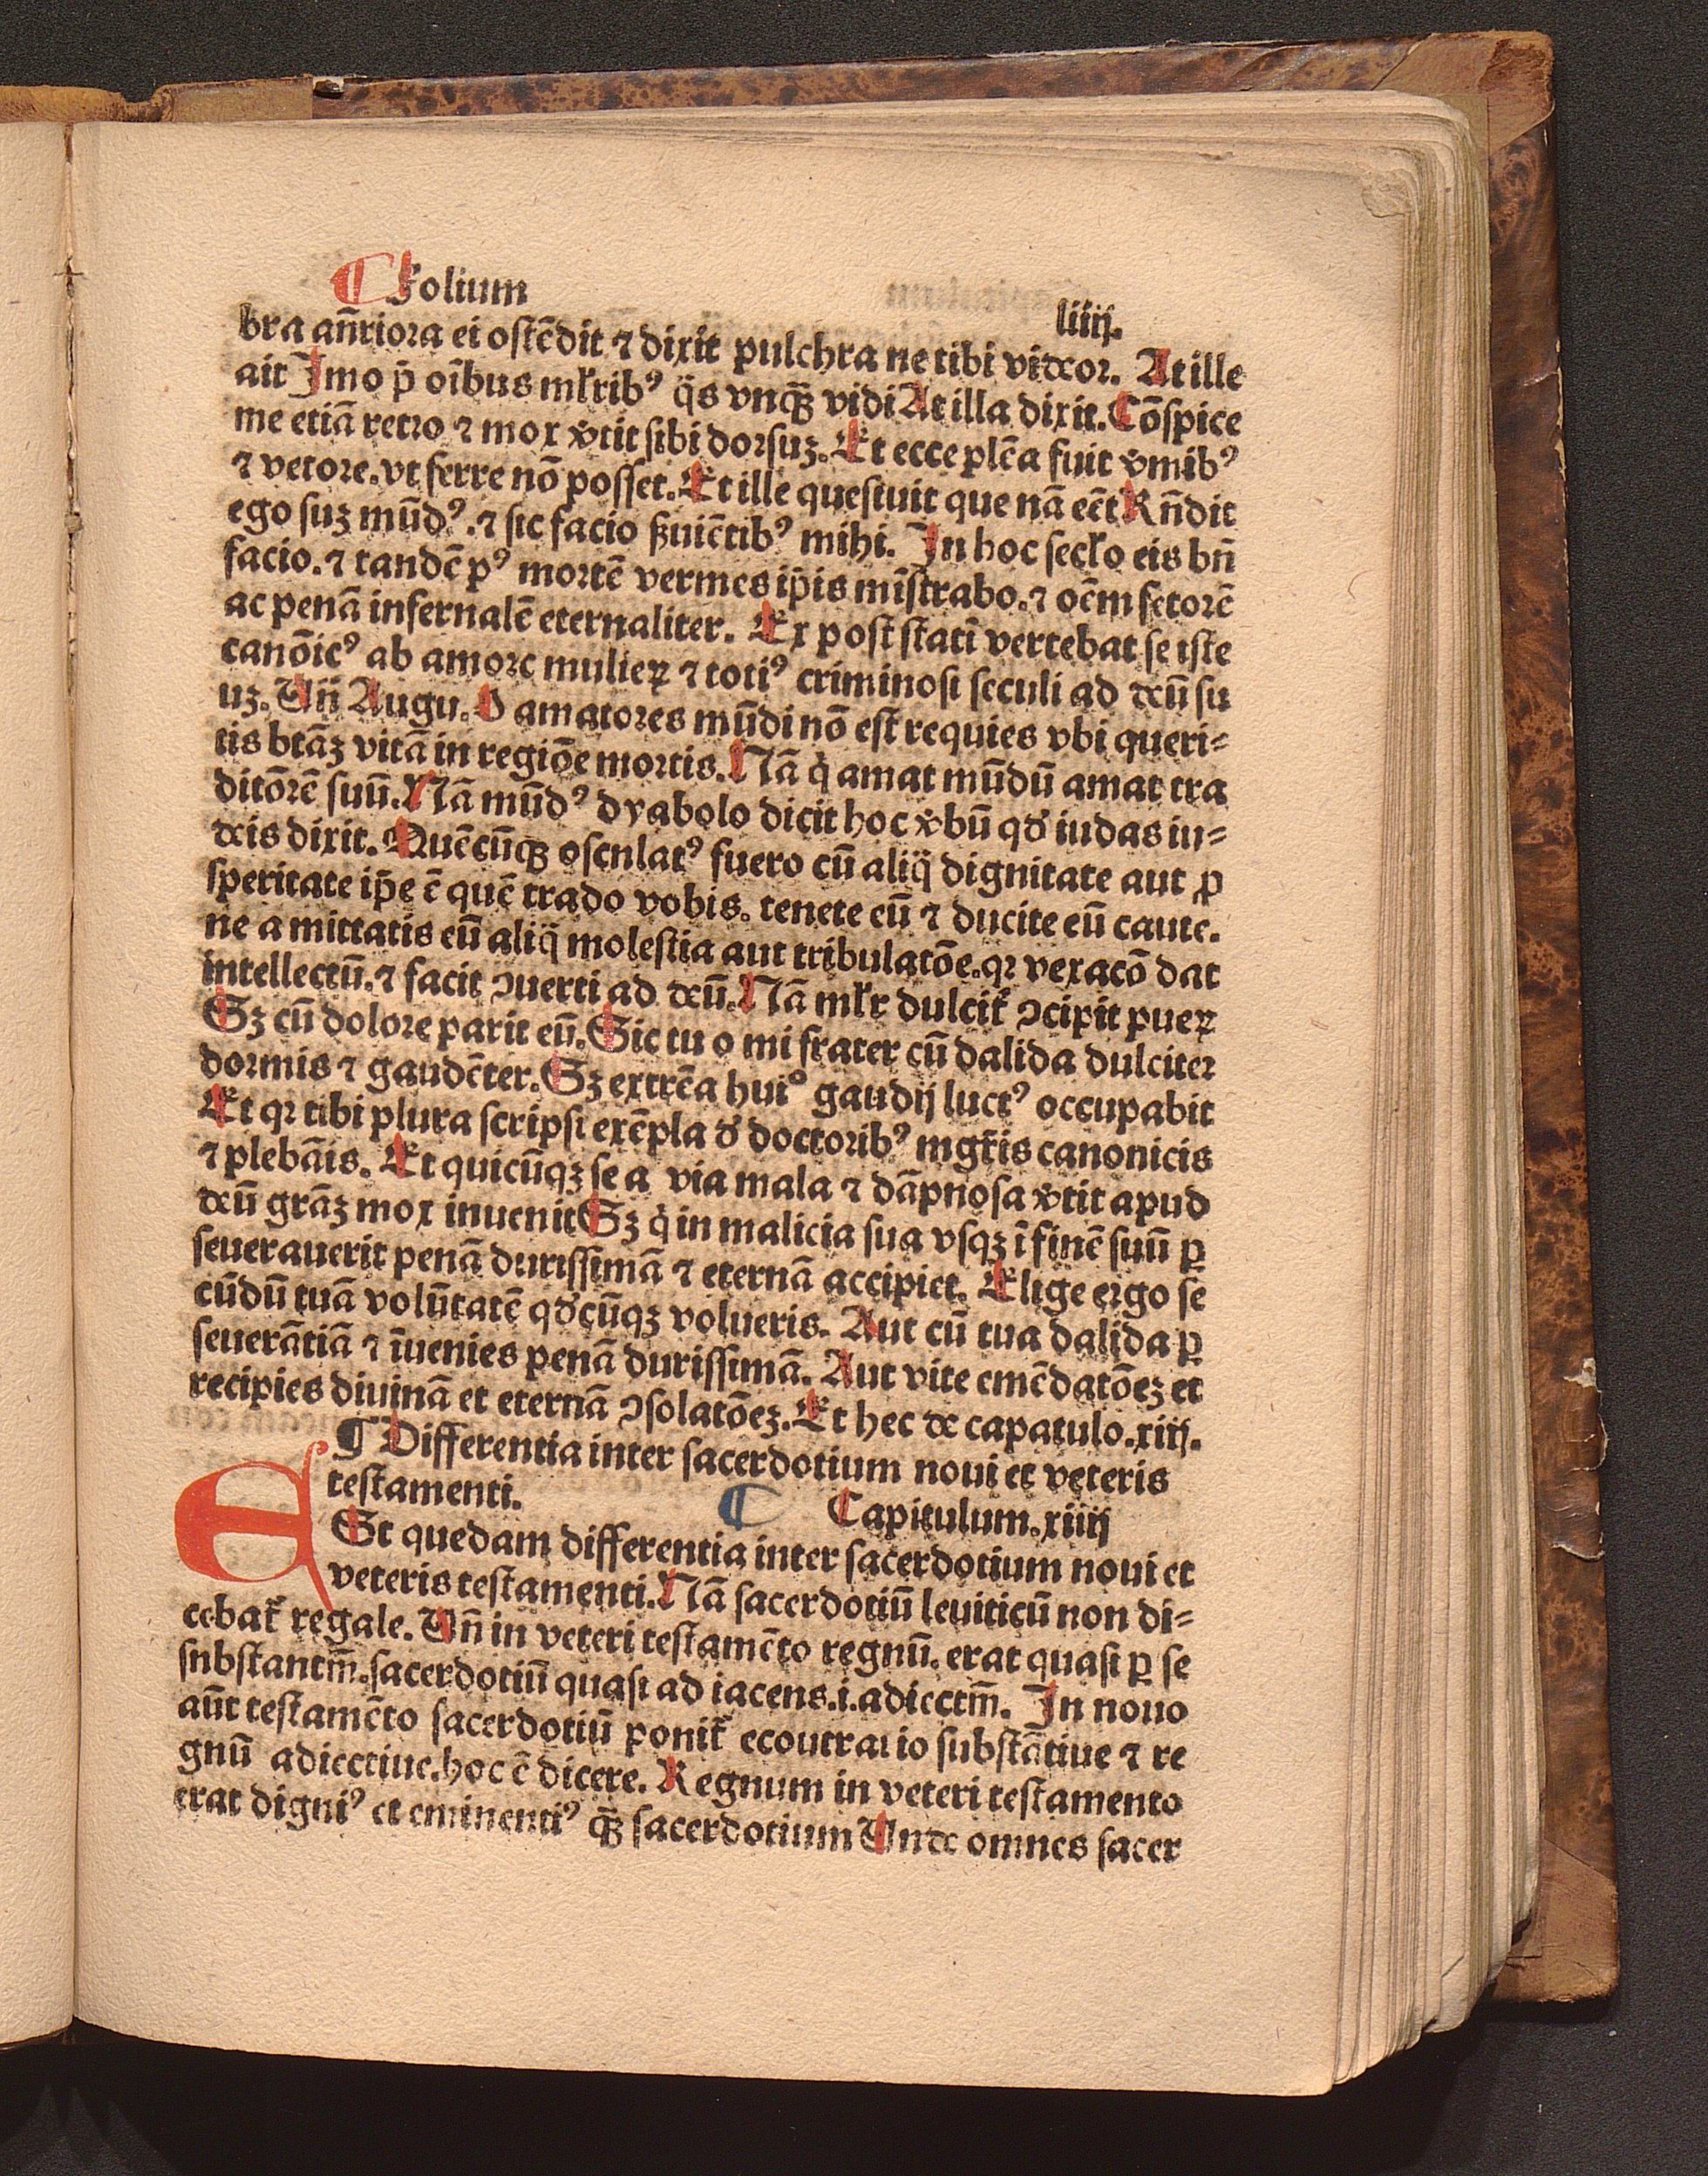 Folium liiij.
bra añriora ei ostẽdit ⁊ dixit pulchra ne tibi videor. At ille
ait Jmo p̄ oĩbus mĺrib⁹ q̈s vnqꝫ̄ vidi At illa dixit. Cõspice
me etiã retro ⁊ mox v̓tit sibi dorsuꝫ. Et ecce plẽa fuit v̓mib⁹
⁊ vetore. vt ferre nõ posset. Et ille questuit que nã eẽt Rñdit
ego suꝫ mũd⁹. ⁊ sic facio ẜuiẽtib⁹ mihi. Jn hoc secĺo eis bñ
facio. ⁊ tandẽ p⁹ mortẽ vermes ip̄is mĩstrabo. ⁊ oẽm fetorẽ
ac penã infernalẽ eternaliter. Ex post statĩ vertebat se iste
canõic⁹ ab amore mulieꝝ ⁊ toti⁹ criminosi seculi ad deũ su
uꝫ. Vñ Augu. O amatores mũdi nõ est requies vbi queri⸗
tis btãꝫ vitã in regiõe mortis. Nã q̇ amat mũdũ amat tra
ditõrẽ suũ. Nã mũd⁹ dyabolo dicit hoc v̓bũ qđ iudas iu⸗
deis dixit. Quẽcũqꝫ oscnlat⁹ fuero cũ aliq̈ dignitate aut ꝓ
speritate ip̄e ẽ quẽ trado vobis. tenete eũ ⁊ ducite eũ caute.
ne a mittatis eũ aliq̈ molestia aut tribulatõe. qꝛ vexacõ dat
intellectũ. ⁊ facit ꝯuerti ad deũ. Nã mĺr dulcit̉ ꝯcipit pueꝝ
Sꝫ cũ dolore parit eũ. Sic tu o mi frater cũ dalida dulciter
dormis ⁊ gaudẽter. Sꝫ extrẽa hui° gaudij luct⁹ occupabit
Et qꝛ tibi plura scripsi exẽpla đ doctorib⁹ mgr̃is canonicis
⁊ plebãis. Et quicũqꝫ se a via mala ⁊ dãpnosa v̓tit apud
deũ grãꝫ mox inuenit Sꝫ q̇ in malicia sua vsqꝫ ĩ finẽ suũ ꝑ
seuerauerit penã durissimã ⁊ eternã accipiet. Elige ergo se
cũdũ tuã volũtatẽ qđcũqꝫ volueris. Aut cũ tua dalida ꝑ
seuerãtiã ⁊ ĩuenies penã durissimã. Aut vite emẽdatõeꝫ et
recipies diuinã et eternã ꝯsolatõeꝫ. Et hec de capatulo. xiij.
¶ Differentia inter sacerdotium noui et veteris
testamenti. Capitulum. xiiij
ESt quedam differentia inter sacerdotium noui et
veteris testamenti. Nã sacerdotiũ leuiticũ non di⸗
cebat̉ regale. Vñ in veteri testamẽto regnũ. erat quasi ꝑ se
snbstantm̃. sacerdotiũ quasi ad iacens. i. adiectm̃. Jn nouo
aũt testamẽto sacerdotiũ ponit̉ ecoutrario substãtiue ⁊ re
gnũ adiectiue. hoc ẽ dicere. Regnum in veteri testamento
erat digni⁹ et eminenti⁹ qꝫ̄ sacerdotium Vnde omnes sacer